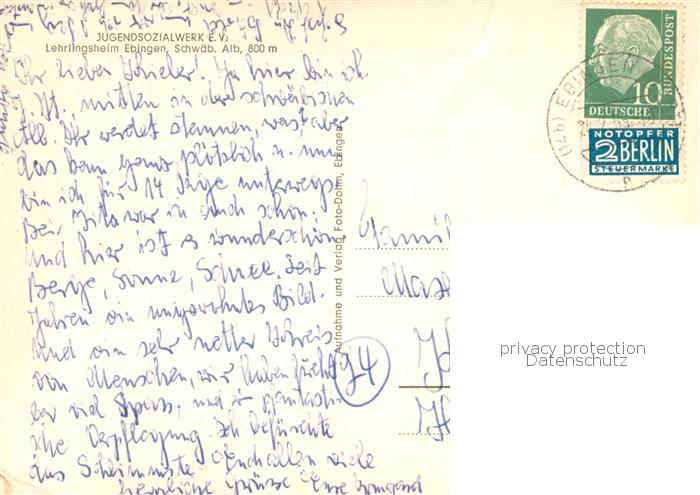 JUGENDSOZIALWERK E.V.
Lehrlingsheim Ebingen, Schwäb. Alb, 800 m
Ihr lieben Ja hier bin ich
z. Zt. mitten in der schwäbischen
Alb. Ihr werdet staunen, was? aber
das kam ganz plötzlich u. nun
bin ich für 14 Tage unterwegs.
Bei Jita war ich auch schon.
Und hier ist es wunderschön.
Berge, Sonne, Schnee. Seit
Jahren ein ungewohntes Bild.
Und ein sehr netter Kreis
von Menschen, wir haben furcht-
bar viel Spass, und 'e phantasti-
sche Verpflegung. Ich befürchte
das Schlimmste. Euch allen viele
herzliche Grüsse Eure Irmgard
Aufnahme und Verlag Foto-Dohm, Ebingen
10
DEUTSCHE
BUNDESPOST
NOTOPFER
2 BERLIN
STEUERMARKE
(14b) EBINGEN
Famil
94
privacy protection
Datenschutz